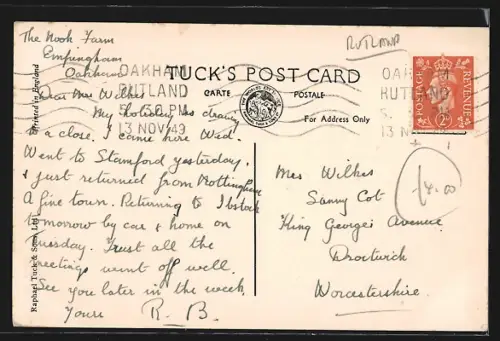 The Nook Farm
Empingham
Oakham
RUTLAND
TUCK'S POST CARD
CARTE POSTALE
For Address Only
OAKHAM
RUTLAND
5.30 PM
13 NOV 49
POSTAGE
REVENUE
Printed in England
Raphael Tuck & Sons Ltd
Dear Mrs Wilkes
My holiday is drawing
to a close. I came here Wed.
Went to Stamford yesterday
& just returned from Nottingham
A fine town. Returning to Ibstock
tomorrow by car & home on
Tuesday. Trust all the
meetings went off well.
See you later in the week.
Yours R. B.
Mrs Wilkes
Sunny Cot
King Georges Avenue
Droitwich
Worcestershire.
£4.00